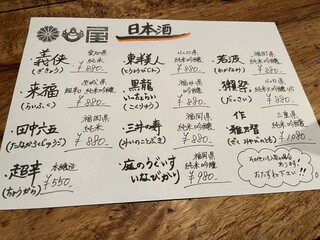 日本酒
・義侠 愛知県
(ぎきょう) 純米
¥880.
・来福 茨城県
(らいふく) 超辛口 純米吟醸
¥880.
・田中六五 福岡県
(たなかろくじゅうご) 純米
¥880.
・超辛 本醸造
(ちょうから) ¥550.
・東洋美人 山口県
(とうようびじん) 純米吟醸
¥880.
・黒龍 福井県
いっちょらい 吟醸
(こくりゅう) ¥880.
・三井の寿 福岡県
(みいのことぶき) 純米吟醸
¥880.
・庭のうぐいす 福岡県
いなびかり 純米吟醸
¥980.
・若波 福岡県
(わかなみ) 純米吟醸
¥880.
・獺祭 山口県
(だっさい) 純米吟醸 45
¥880.
・作 三重県
雅乃智 純米吟醸
(ざく みやびのとも) ¥1,080
あります!
おたずね下さい!!